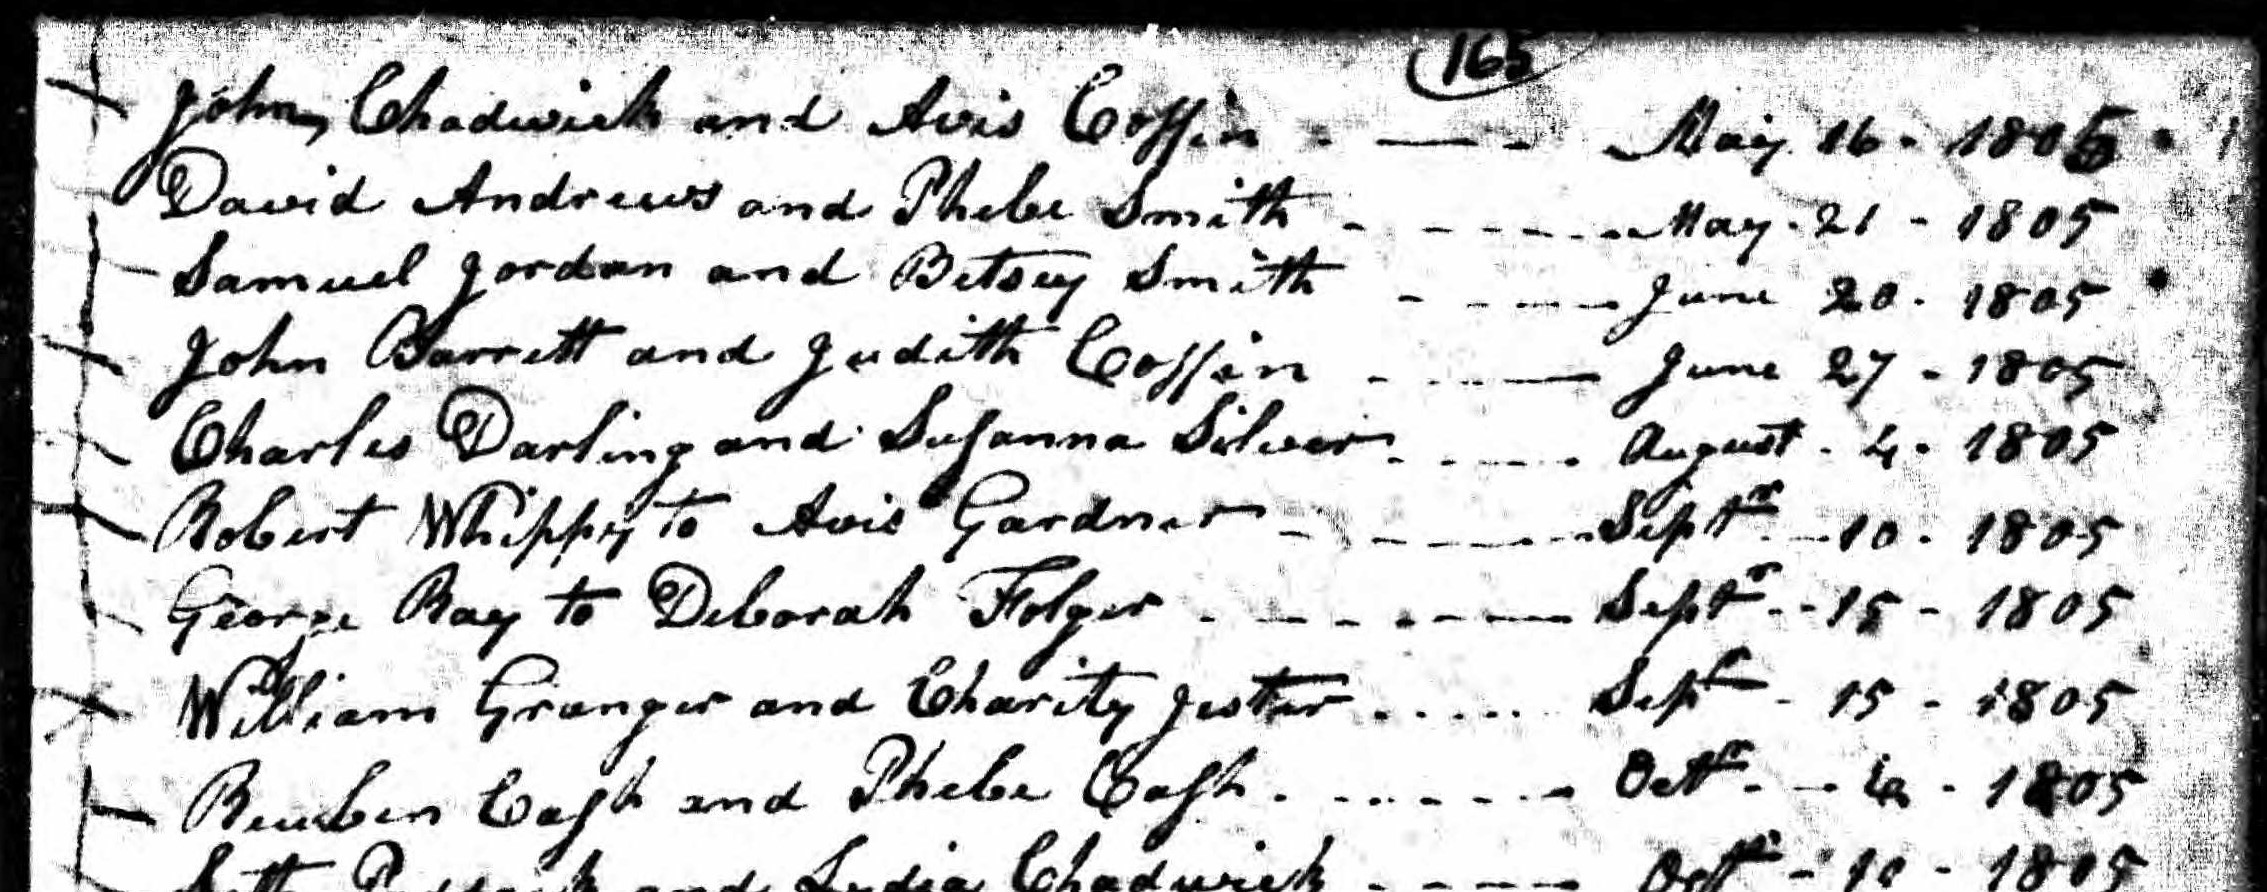 165
John Chadwick and Avis Coffin - — - May 16 - 1805
David Andrews and Phebe Smith - - - - - May - 21 - 1805
Samuel Jordan and Betsey Smith - - - - June 20 - 1805
John Barrett and Judith Coffin - - — June 27 - 1805
Charles Darling and Suſanna Silver - - - - August - 4 - 1805
Robert Whippy to Avis Gardner - - - - - Septr - 10 - 1805
George Ray to Deborah Folger - - - - - Septr - 15 - 1805
William Granger and Charity Jester - - - - - Sept - 15 - 1805
Reuben Caſh and Phebe Caſh - - - - - - Octr - - 1805
Seth and Lydia Chadwick - - - - Octr - 10 - 1805